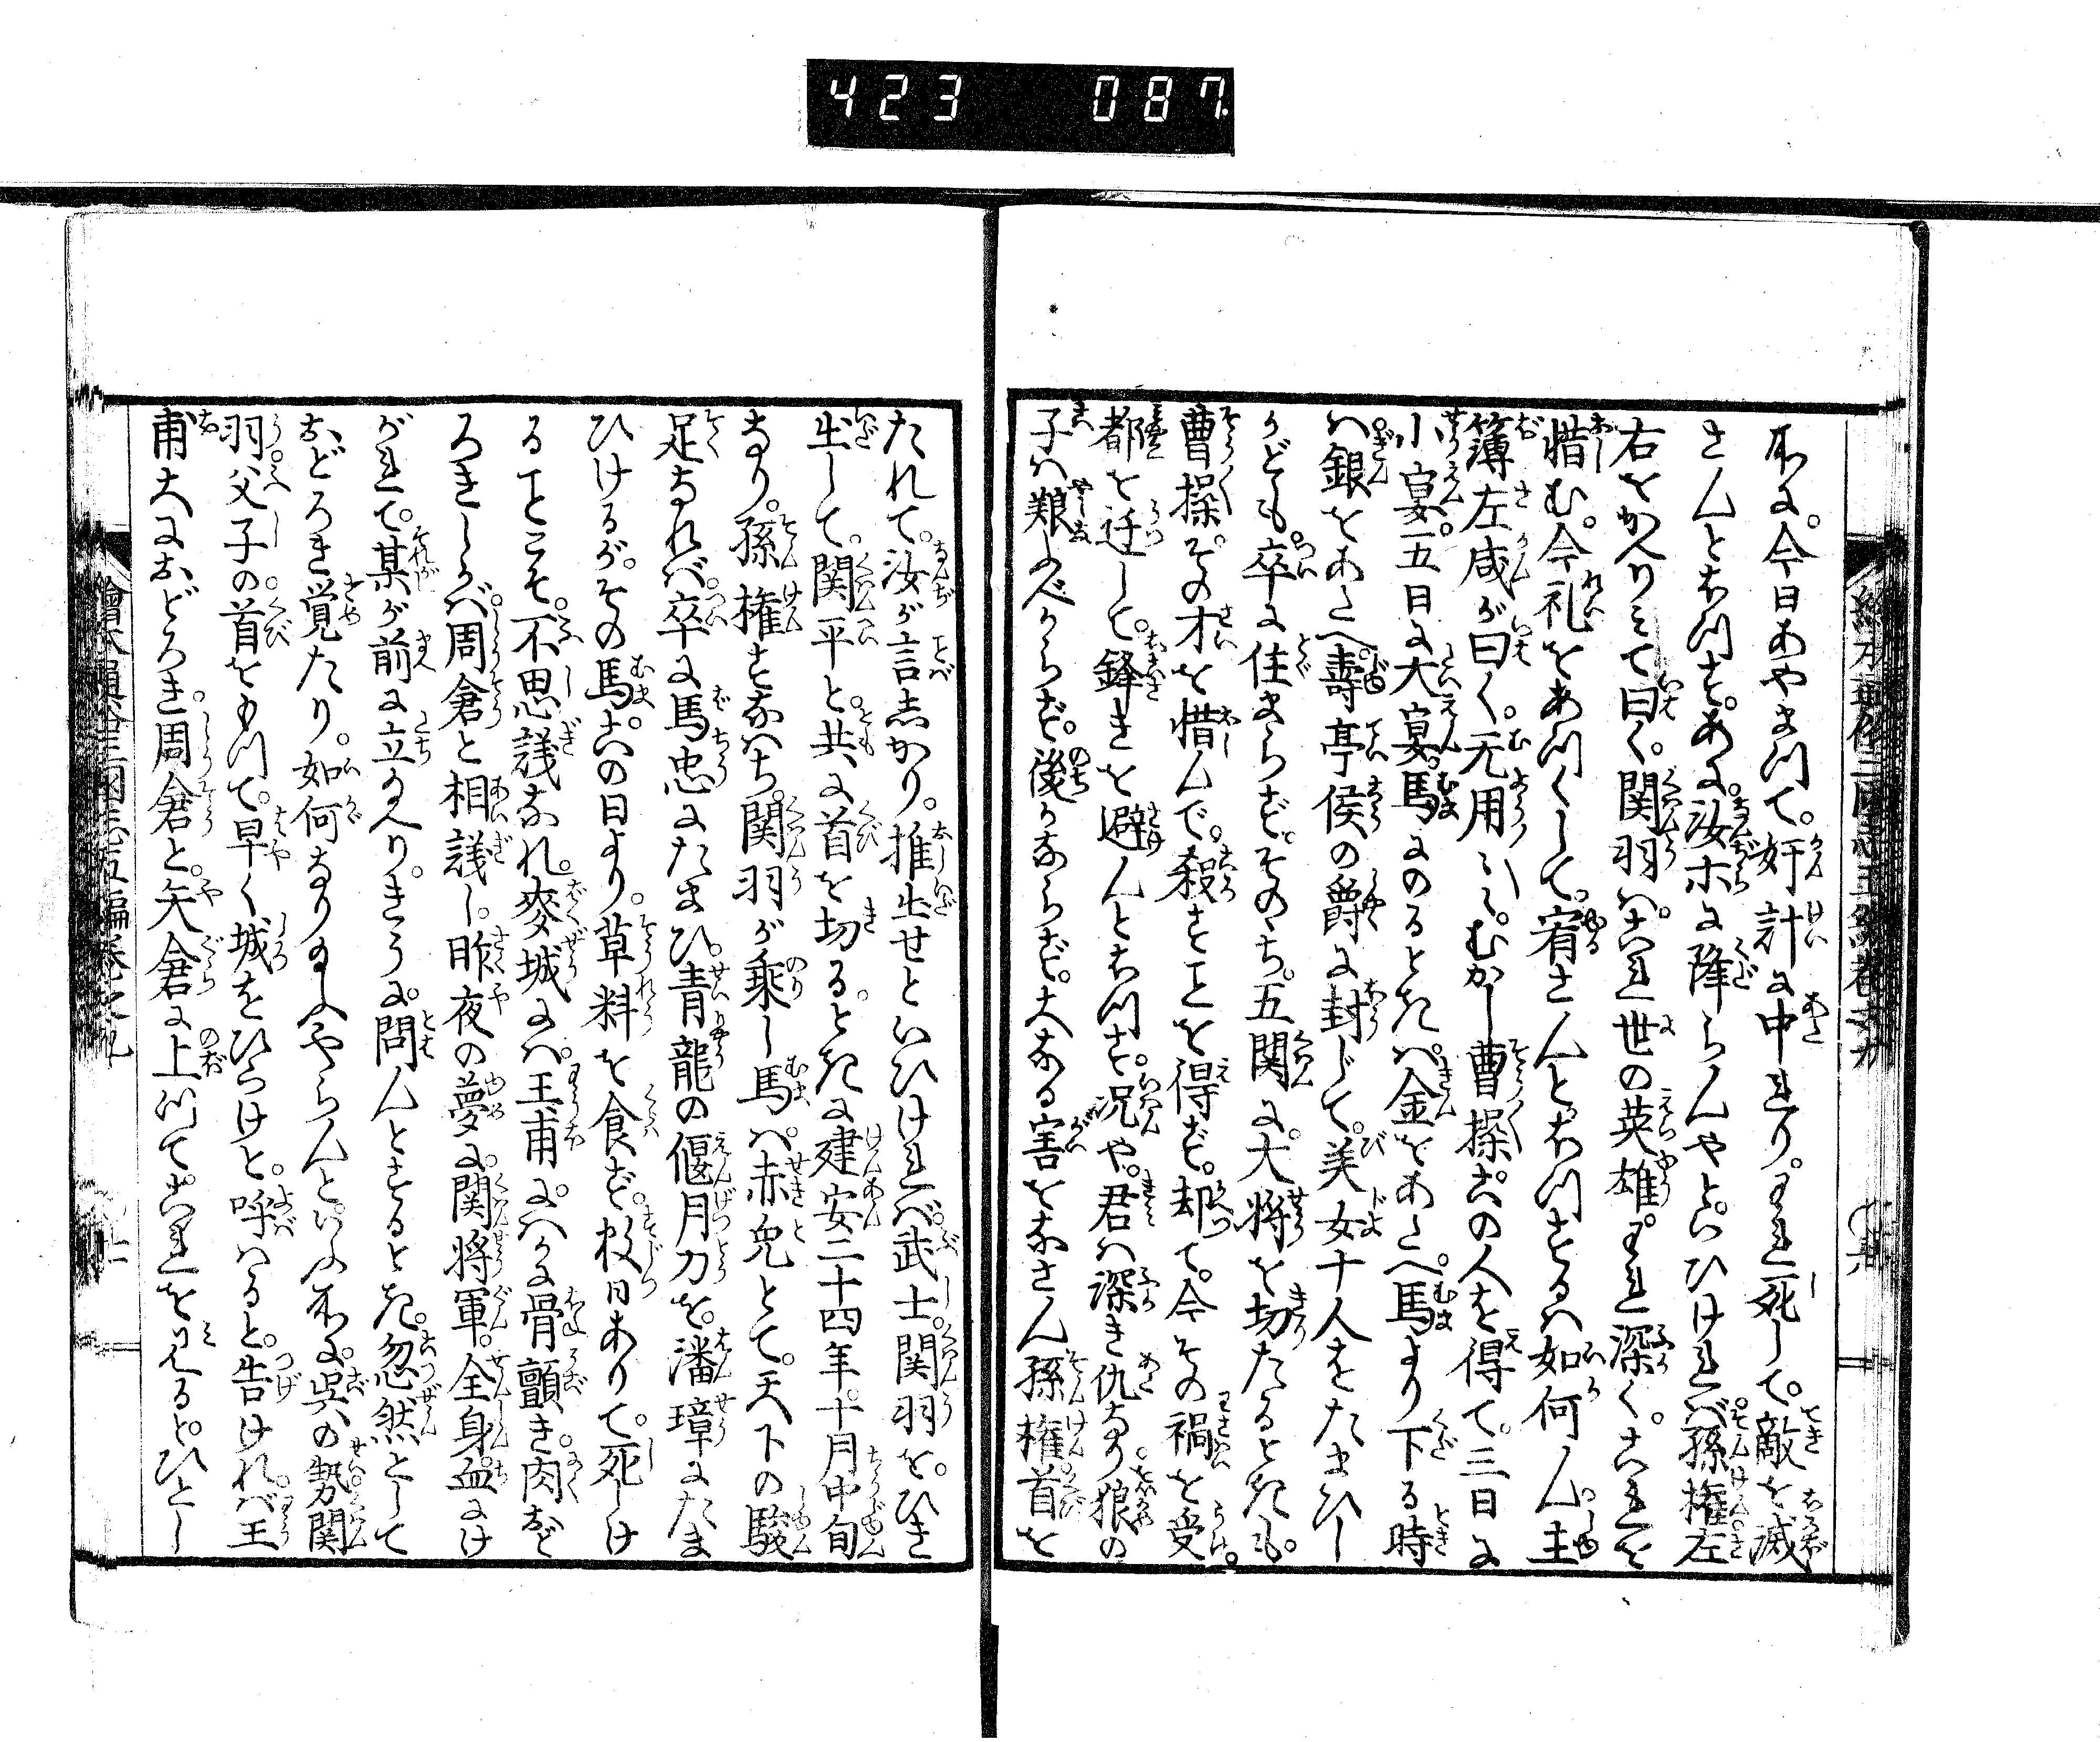 423 087
所に。今日あやまつて。奸計に中れり。われ死して。敵を滅
さんとおもつを。あに汝ホに降らんやといひければ孫権左
右をかへりミて曰く。関羽ハこれ世の英雄われ深く。これを
惜む。今礼をあつくして。宥さんとおもつするハ如何ん主
簿左咸が曰く。无用ハ〻むかし曹操この人を得て。三日に
小宴。五日に大宴。馬にのるときハ金をあたへ馬より下る時
ハ銀をあたへ壽亭侯の爵に封じて。美女十人をたまひし
かども卒に住まらず。そのゝち。五関に大将を切たるときも。
曹操。その才を惜んで。殺すことを得ず。却て。今その禍を受
都を迁して。鋒きを避んとおもつを。况や。君ハ深き仇なり狼の
子ハ艱ふべからず。後かならず。大なる害をなさん孫権首を
たれて。汝が言しかり。推出せといひければ武士。関羽を。ひき
出して。関平と共に首を切る。ときに建安二十四年。十月中旬
なり。孫権すなハち。関羽が乗し馬ハ赤兔とて。天下の駿
足なれバ卒に馬忠にたまひ。青龍の偃月刀を。潘璋にたま
ひけるが。その馬。この日より。草料を食ず。数日ありて。死しけ
ることこそ。不思議なれ。麥城にハ王甫。にハかに骨顫き。肉おど
ろきしかバ周倉と相議し。昨夜の夢に関将軍。全身血にけ
がれて。某が前に立給へり。きうに問んとするとき。忽然として
おどろき覚たり。如何なりけんやらんと。いふ所に。呉の勢関
羽父子の首をもつて。早く城をひらけと。呼ハると。告けれバ王
甫大におどろき。周倉と。矢倉に上つて。これを見ると。ひとし